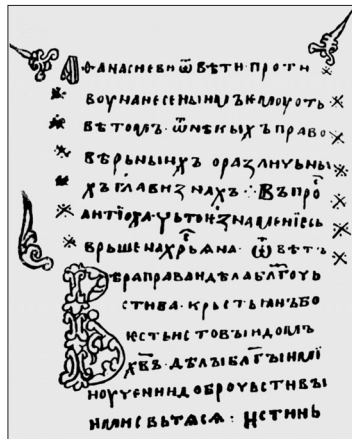 Аѳанасиеви ѿвѣти проти
воу нанесеныимъ емоу отъ
вѣтомъ. ѿ нѣкыхъ право
вѣрьныихъ о различьны
хъ главизнахъ ⁘ Въпрⷪ
антїоха. чьто ѥ знамениѥ съ
врьшена хрⷭьꙗна. ѿвѣтъ
Вѣра права и дѣла бл҃гочь
стива. крьстьꙗнъ бо
ѥсть истовыи домъ
хв҃ъ. дѣлы бл҃гыими
и оучении доброчьстивы
ими съвьтаѧсѧ : истинь